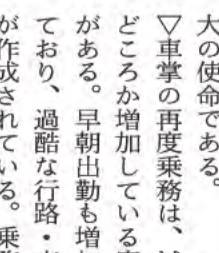 大の使命である。
▽車掌の再度乗務は、
どころか増加している
がある。早朝出勤も増
ており、過酷な行路・
が作成されている。乗